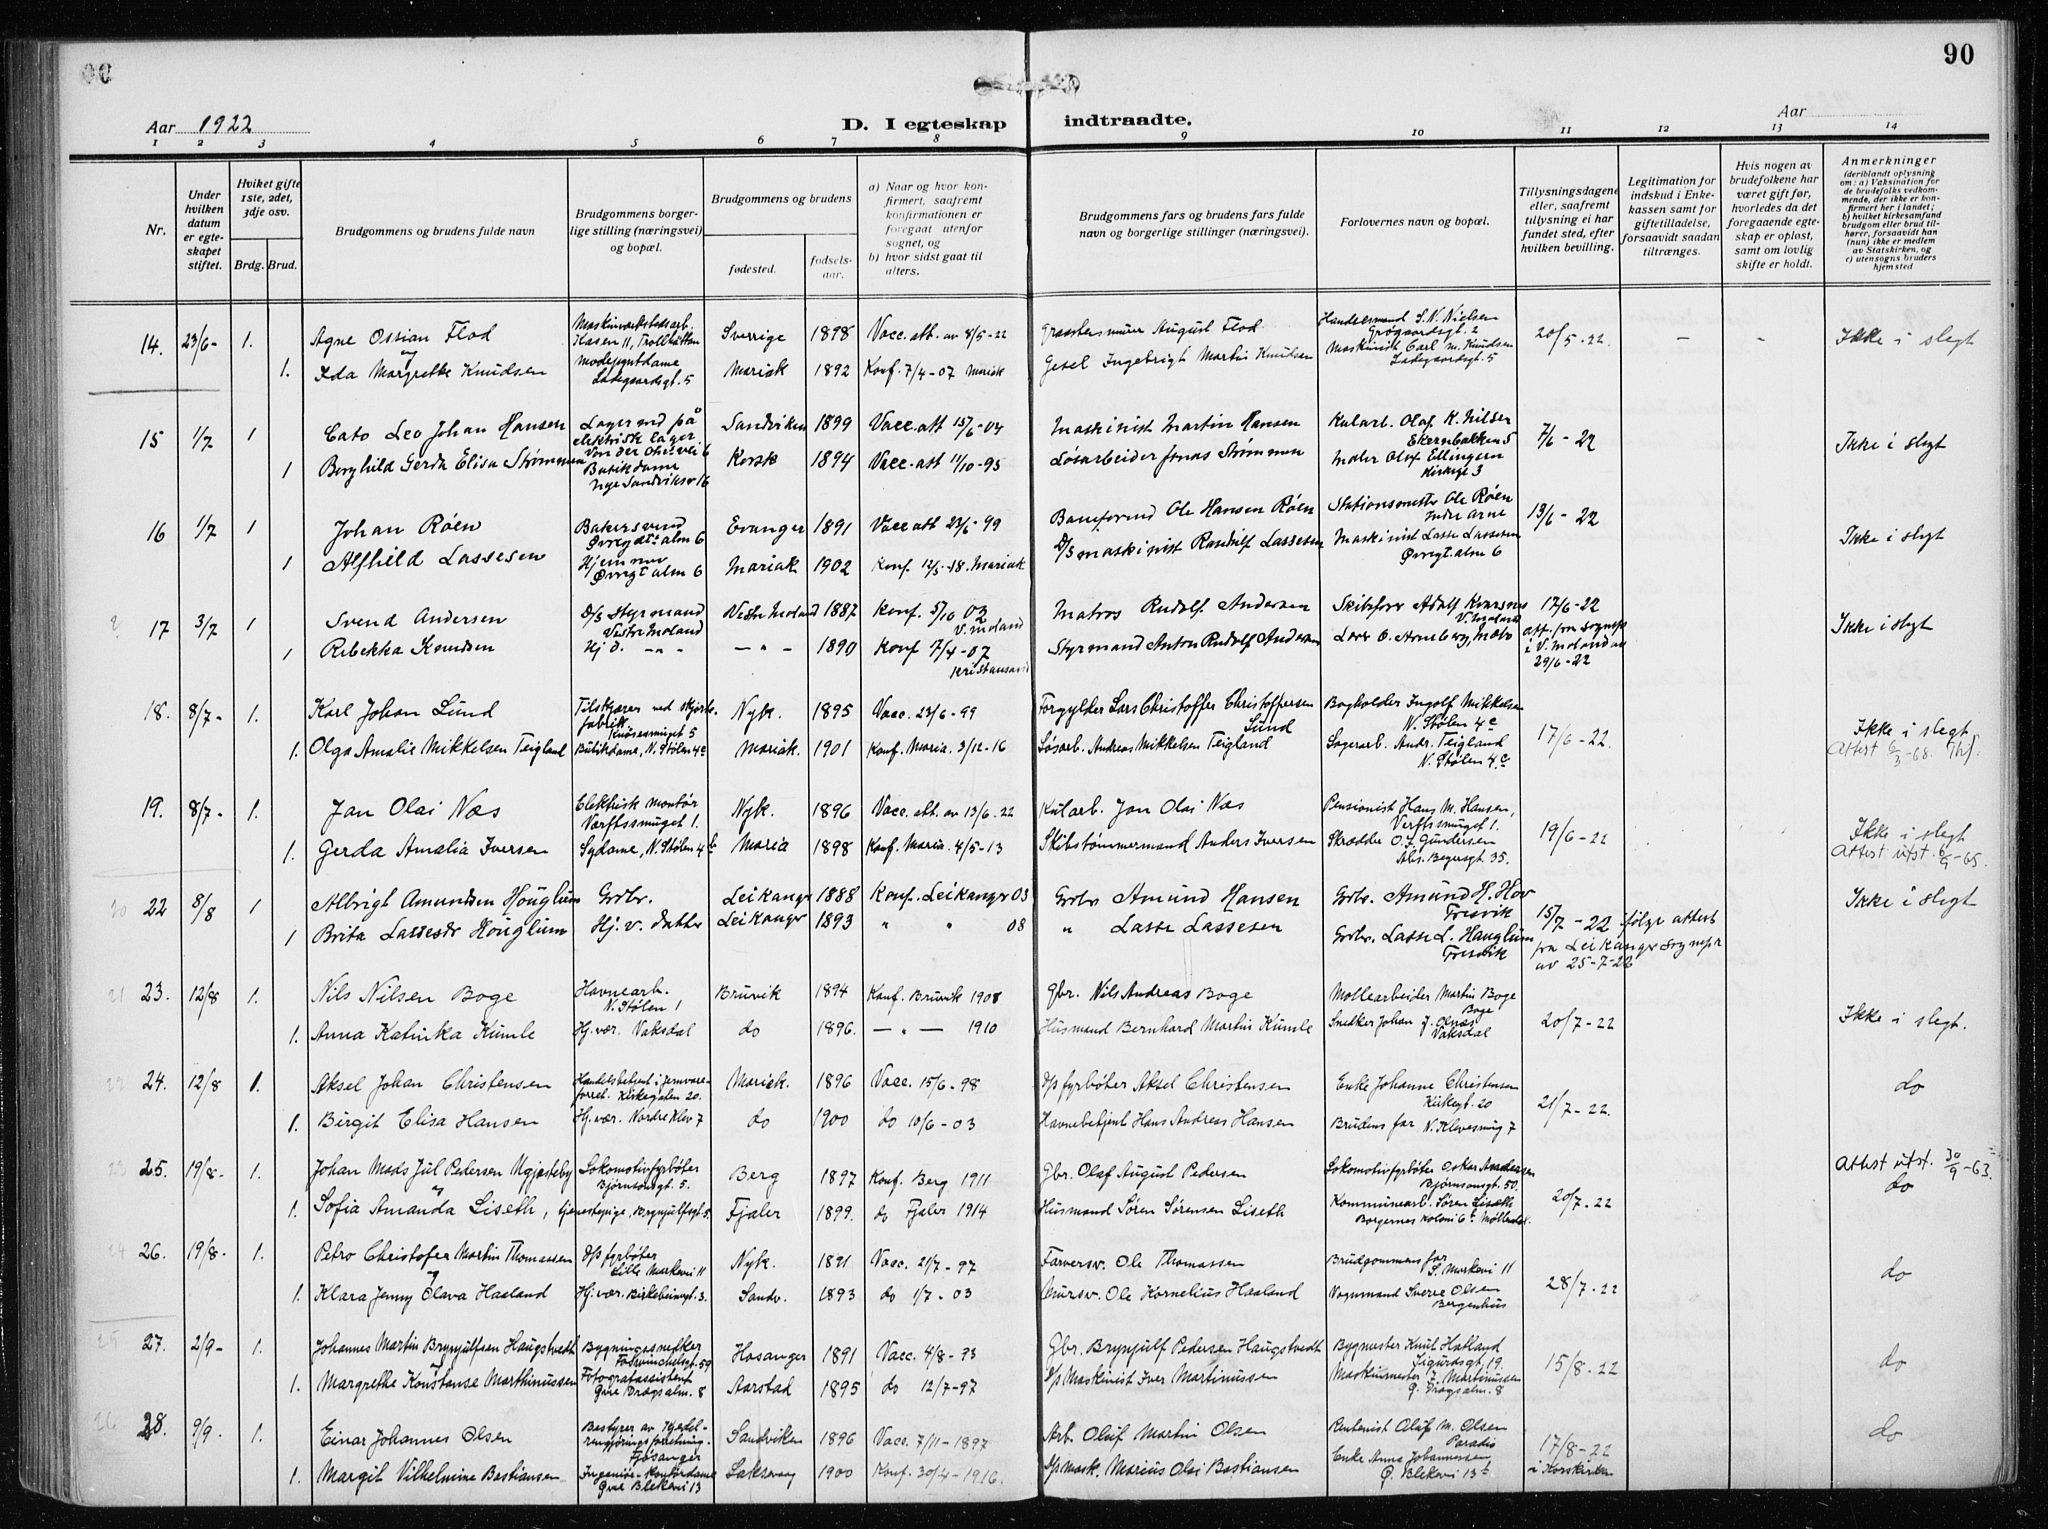 90
Aar 1922
D. I egteskap indtraadte.
Aar
1 2 3 4 5 6 7 8 9 10 11 12 13 14
Nr.
Under hvilken datum er egteskapet stiftet.
Hviket gifte 1ste, 2det, 3dje osv.
Brdg. Brud.
Brudgommens og brudens fulde navn
Brudgommens borgerlige stilling (næringsvei) og bopæl.
Brudgommens og brudens
fødested.
fødselsaar.
a) Naar og hvor konfirmert, saafremt konfirmationen er foregaat utenfor sognet, og
b) hvor sidst gaat til alters.
Brudgommens fars og brudens fars fulde navn og borgerlige stillinger (næringsvei).
Forlovernes navn og bopæl.
Tillysningsdagene eller, saafremt tillysning ei har fundet sted, efter hvilken bevilling.
Legitimation for indskud i Enkekassen samt for giftetilladelse, forsaavidt saadan tiltrænges.
Hvis nogen av brudefolkene har været gift før, hvorledes da det foregaaende egteskap er opløst, samt om lovlig skifte er holdt.
Anmerkninger (deriblandt oplysning om: a) Vaksination for de brudefolks vedkommende, der ikke er konfirmert her i landet; b) hvilket kirkesamfund brudgom eller brud tilhører, forsaavidt han (hun) ikke er medlem av Statskirken, og c) utensogns bruders hjemsted
14. 23/6- 1. Agne Ossian Flod Maskinverkstedsarb. Hasen 11, Trollhättan Sverige 1898 Vacc. att. av 8/5-22 August Flod Handelsmand S. N. Nielsen Grøgaardsgt. 2 20/5-22 - - Ikke i slegt
og
1. Ida Margrethe Knudsen Modepyntdame Ladegaardsgt. 5 Mariak 1892 Konf. 7/4-07 Mariak Gesel Ingebrigt Martin Knudsen Maskinist Carl M. Knudsen Ladegaardsgt. 5
15 1/7 1 Cato Leo Johan Hansen Lagermd på elektrisk lager Sandviken 1899 Vacc. att 15/6-04 Maskinist Martin Hansen Kularb. Olaf K. Nilsen Ekernbakken 5 7/6-22 Ikke i slegt
1 Borghild Gerda Elisa Strømmen Butikdame Nye Sandviksv 16 Korsk 1894 Vacc. att 11/10-95 Løsarbeider Jonas Strømmen Maler Olaf Ellingsen Kirkegt 3
16 1/7 1 Johan Røen Bakersvend Øvregt alm 6 Evanger 1891 Vacc att 23/6-99 Baneformd Ole Hansen Røen Stationsmestr Ole Røen Indre Arne 13/6-22 Ikke i slegt
1 Alfhild Lassesen Hjemme Øvregt alm 6 Mariak 1902 Konf. 12/5-18. Mariak D/S maskinist Lassesen Maskinist Lasse Lassesen Øvregt alm 6
17 3/7 1 Svend Andersen D/S Styrmand Vestre Moland Vestre Moland 1887 Konf. 5/10 02 V. Moland Matros Rudolf Andersen Skibsfører Adolf V. Moland 17/6-22
1 Rebekka Knudsen Hj d. - " - - " - 1890 Konf 7/4-07 Kristiansand Styrmand Anton Rudolf Andersen att. fra Sognepr i V. Moland av 29/6-22 Ikke i slegt
18. 8/7- 1. Karl Johan Lund Tilskjærer ved skjortefabrik. Knøsesmuget 5 Nyk. 1895 Vacc. 23/6-99 Forgylder Lars Christoffer Christoffersen Lund Bogholder Ingolf Mikkelsen N. Stølen 4c 17/6-22. Ikke i slegt.
1. Olga Amalie Mikkelsen Teigland Butikdame, N. Stølen 4c Mariak. 1901 Konf. Maria. 3/12-16 Løsarb. Andreas Mikkelsen Teigland Lagerarb. Andr. Teigland N. Stølen 4c Attest 6/3-68.
19. 8/7- 1. Jan Olai Næs Elektrisk montør Verftssmuget 1. Nyk. 1896 Vacc. att. av 13/6-22 Kularb. Jon Olai Næs Pensionist Hans M. Hansen, Verftssmuget 1. 19/6-22 Ikke i slegt
1. Gerda Amalia Iversen Sydame, N. Stølen 4b Maria 1898 Konf. Maria. 4/5-13 Skibstømmermand Anders Iversen Skrædder O. S. Gundersen Abs. Beyersgt. 35. Attest utst. 6/9-65.
22 8/8 1 Albrigt Amundsen Høuglum Grbr. Leikanger 1888 Konf. Leikanger 03 Grbr Amund Hansen Grbr. Amund H. Hov Fresvik 15/7-22 ifølge attest Ikke i slegt
1 Brita Lassesdr Høuglum Hj. v. datter Leikanger 1893 " " 08 " Lasse Lassesen Grbr. Lasse L. Hauglum Fresvik fra Leikanger Sognepr av 25-7-22
23. 12/8 1. Nils Nilsen Boge Havnearb. N. Stølen 1 Bruvik 1894 Konf. Bruvik 1908 Gbr. Nils Andreas Boge Møllearbeider Martin Boge Boge 20/7-22 Ikke i slegt.
1. Anna Katinka Kumle Hj. vær. Vaksdal do 1896. - " - 1910 Husmand Bernhard Martin Kumle Snedker Johan J. Olnes Vaksdal
24. 12/8 1. Aksel Johan Christensen Handelsbetjent i jernvareforret. Kirkegaten 20. Mariak. 1896 Vacc. 15/6-98 D/s fyrbøter Aksel Christensen Enke Johanne Christensen Kirkegt. 20 21/7-22. do
1. Birgit Elisa Hansen Hj. vær. Nordre Klev 7 do 1900 do 10/6-03 Havnebetjent Hans Andreas Hansen Brudens far N. Klevesmug 7
25. 19/8- 1. Johan Mads Jul Pedersen Ugjesteby Lokomotivfyrbøter Bjørnsonsgt. 5. Berg 1897 Konf. Berg 1911 Gbr. Olaf August Pedersen Lokomotivfyrbøter Oskar Andersen Bjørnsonsgt. 50. 20/7-22 Attest utst. 30/9-63.
og
1. Sofia Amanda Liseth, tjenestepige, Brynjulfsgt 5. Fjaler 1899. do Fjaler 1914 Husmand Søren Sørensen Liseth Kommunearb. Søren Liseth Borgernes Koloni 6b Møllendal. do
26. 19/8. 1. Petro Christofer Martin Thomassen D/s fyrbøter Lille Markevei 11 Nyk. 1891 Vacc. 21/7-97 Farversv. Ole Thomassen Brudgommens far S. Markevei 11 28/7-22 do
og
1. Klara Jenny Olava Haaland Hj. vær. Birkebeinergt. 3. Sandv. 1893 do 1/7-03 Mursv. Ole Kornelius Haaland Vognmand Sverre Olsen Bergenhus
27. 2/9- 1. Johannes Martin Brynjulfsen Haugstvedt Bygningssnedker Fosswinckelsgt. 59 Hosanger 1891 Vacc. 4/8-93 Gbr. Brynjulf Pedersen Haugstvedt Bygmester Knut Hatland Sigurdsgt. 19. 15/8-22 do
1. Margrethe Konstanse Marthinussen Fotografassistent Øvre Dragsalm. 8 Aarstad 1895 do 12/7-97 D/s Maskinist Iver Martinussen Maskinmester J. Martinussen Ø. Dragsalm. 8
28. 9/9. 1. Einar Johannes Olsen Bestyrer av Kjedelrengjøringsforretning. Fjøsanger Sandviken 1896 Vacc. 7/11-1897 Arb. Oluf Martin Olsen Rentenist Oluf M. Olsen Paradis 17/8-22 do
1. Margit Vilhelmine Bastiansen Kontordame Øvre Blekevei 13 Laksevaag 1900 Konf. 30/4-1916. D/s Mask. Marius Olai Bastiansen Enke Anna Johannessen Ø. Blekevei 13b i Korskirken